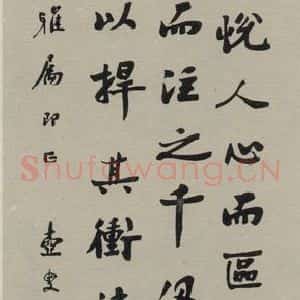 悅人心而區
而注之千
以捍其衝
雅屬即正 壺叟
Shufawang.CN